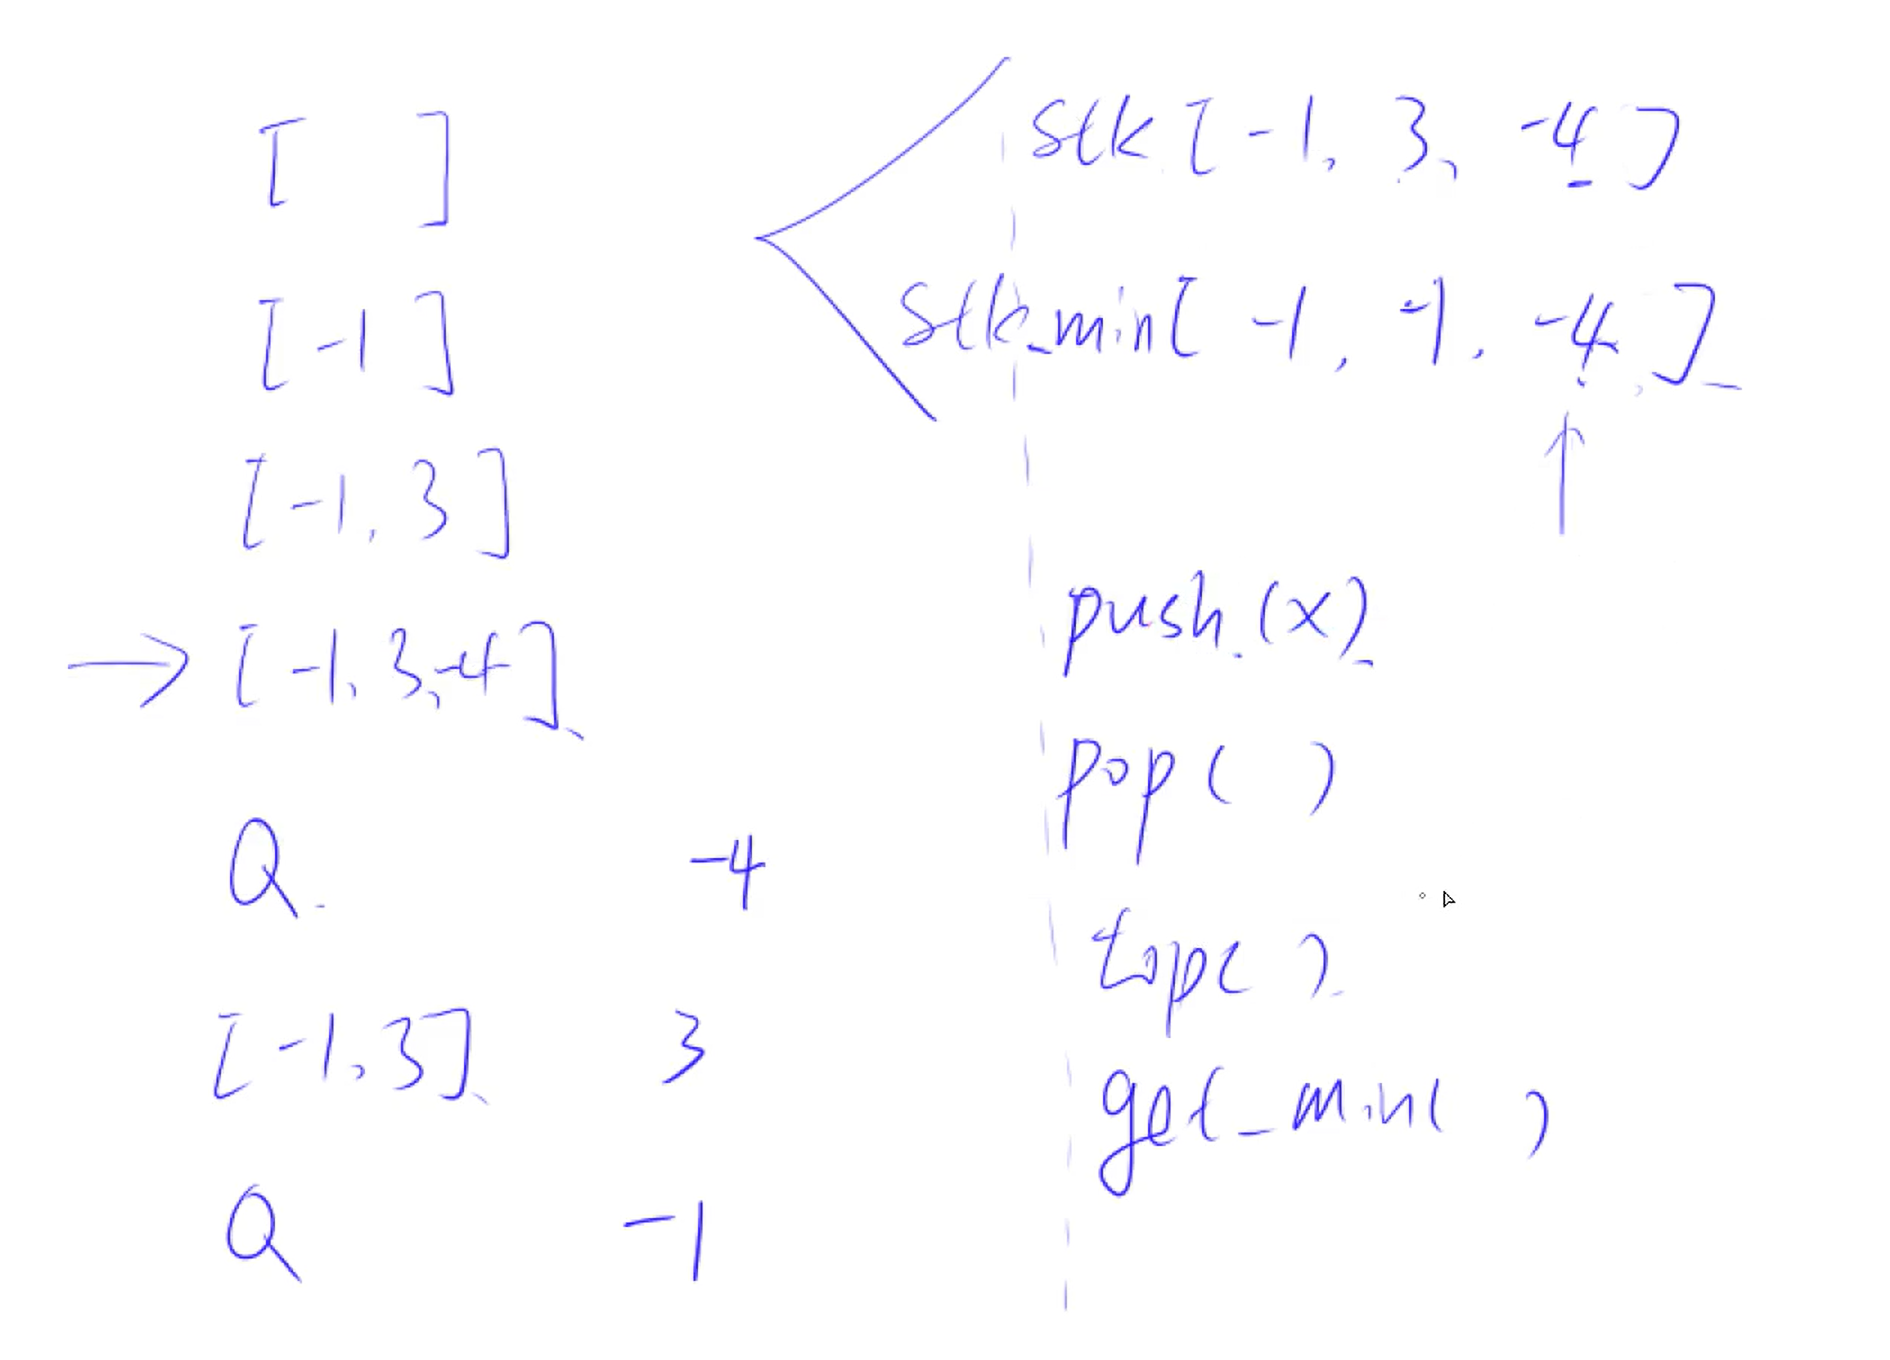 [ ]
[ -1 ]
[ -1, 3 ]
→ [ -1, 3, -4 ]
Q -4
[ -1, 3 ] 3
Q -1
stk [ -1, 3, -4 ]
stk_min [ -1, -1, -4 ]
push (x)
pop ( )
top ( )
get_min ( )